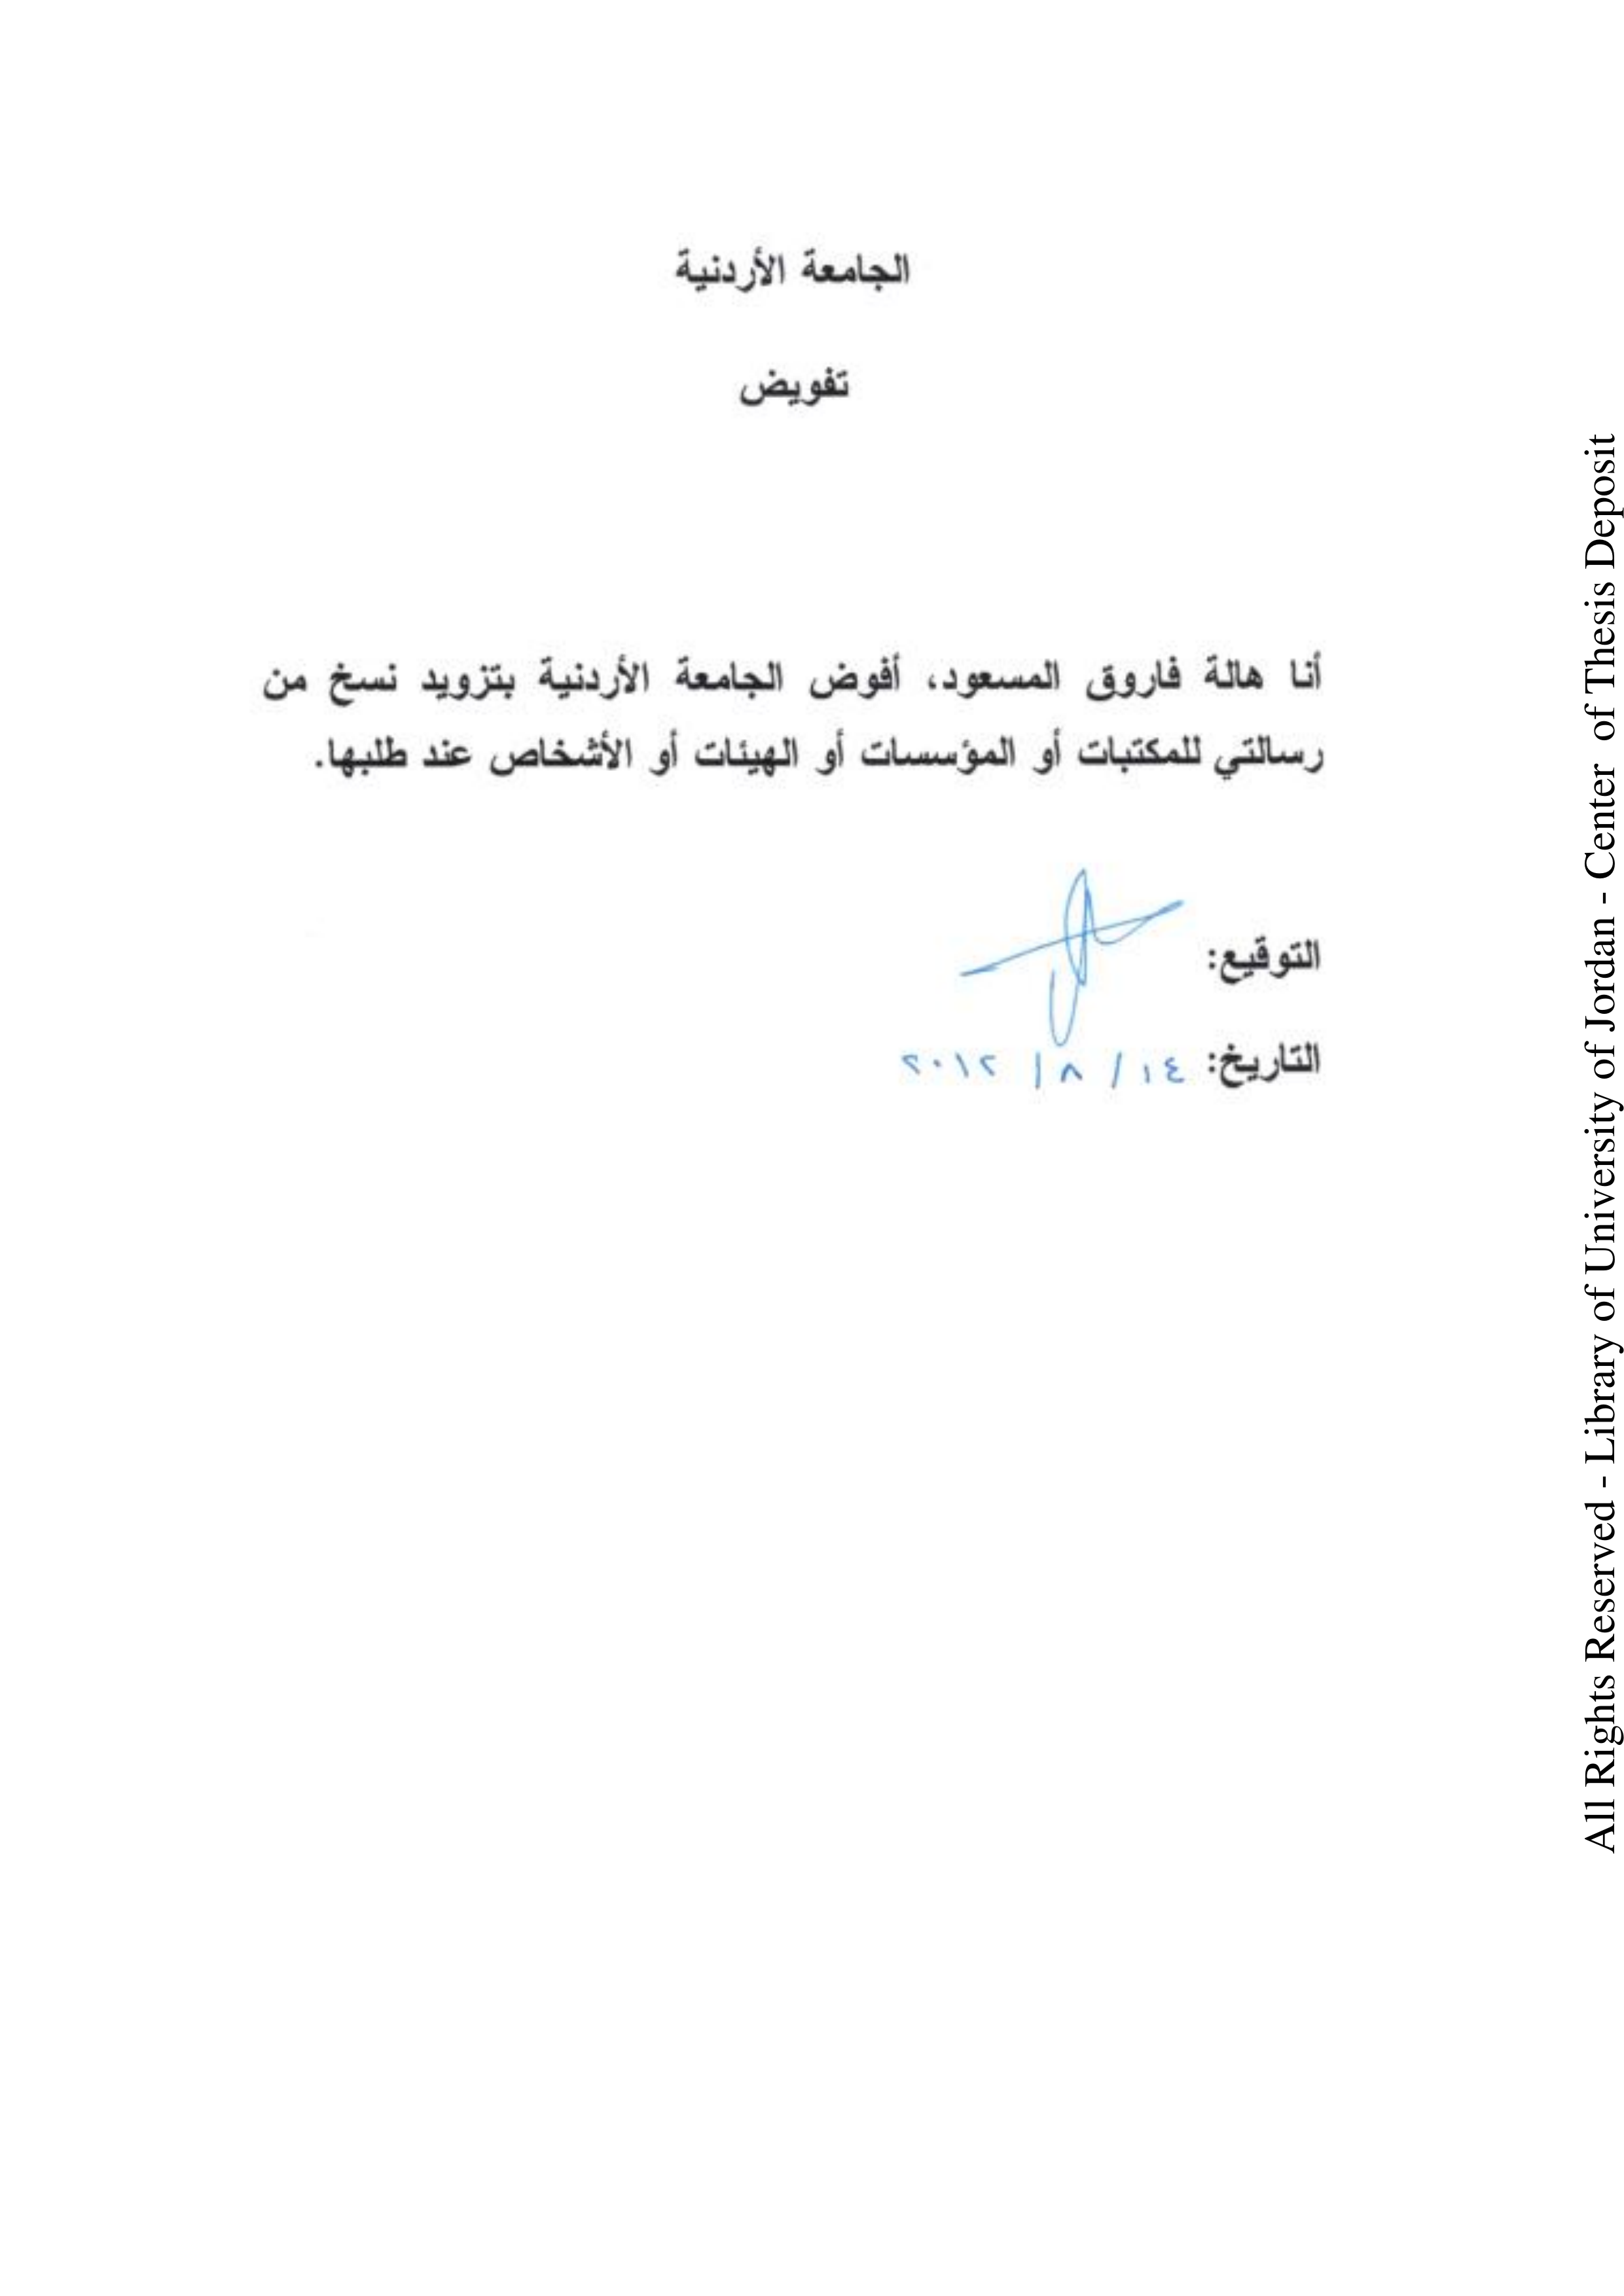 الجامعة الأردنية
تفويض
أنا هالة فاروق المسعود، أفوض الجامعة الأردنية بتزويد نسخ من
رسالتي للمكتبات أو المؤسسات أو الهيئات أو الأشخاص عند طلبها.
التوقيع:
التاريخ: ١٤ / ٨ / ٢٠١٢
All Rights Reserved - Library of University of Jordan - Center of Thesis Deposit